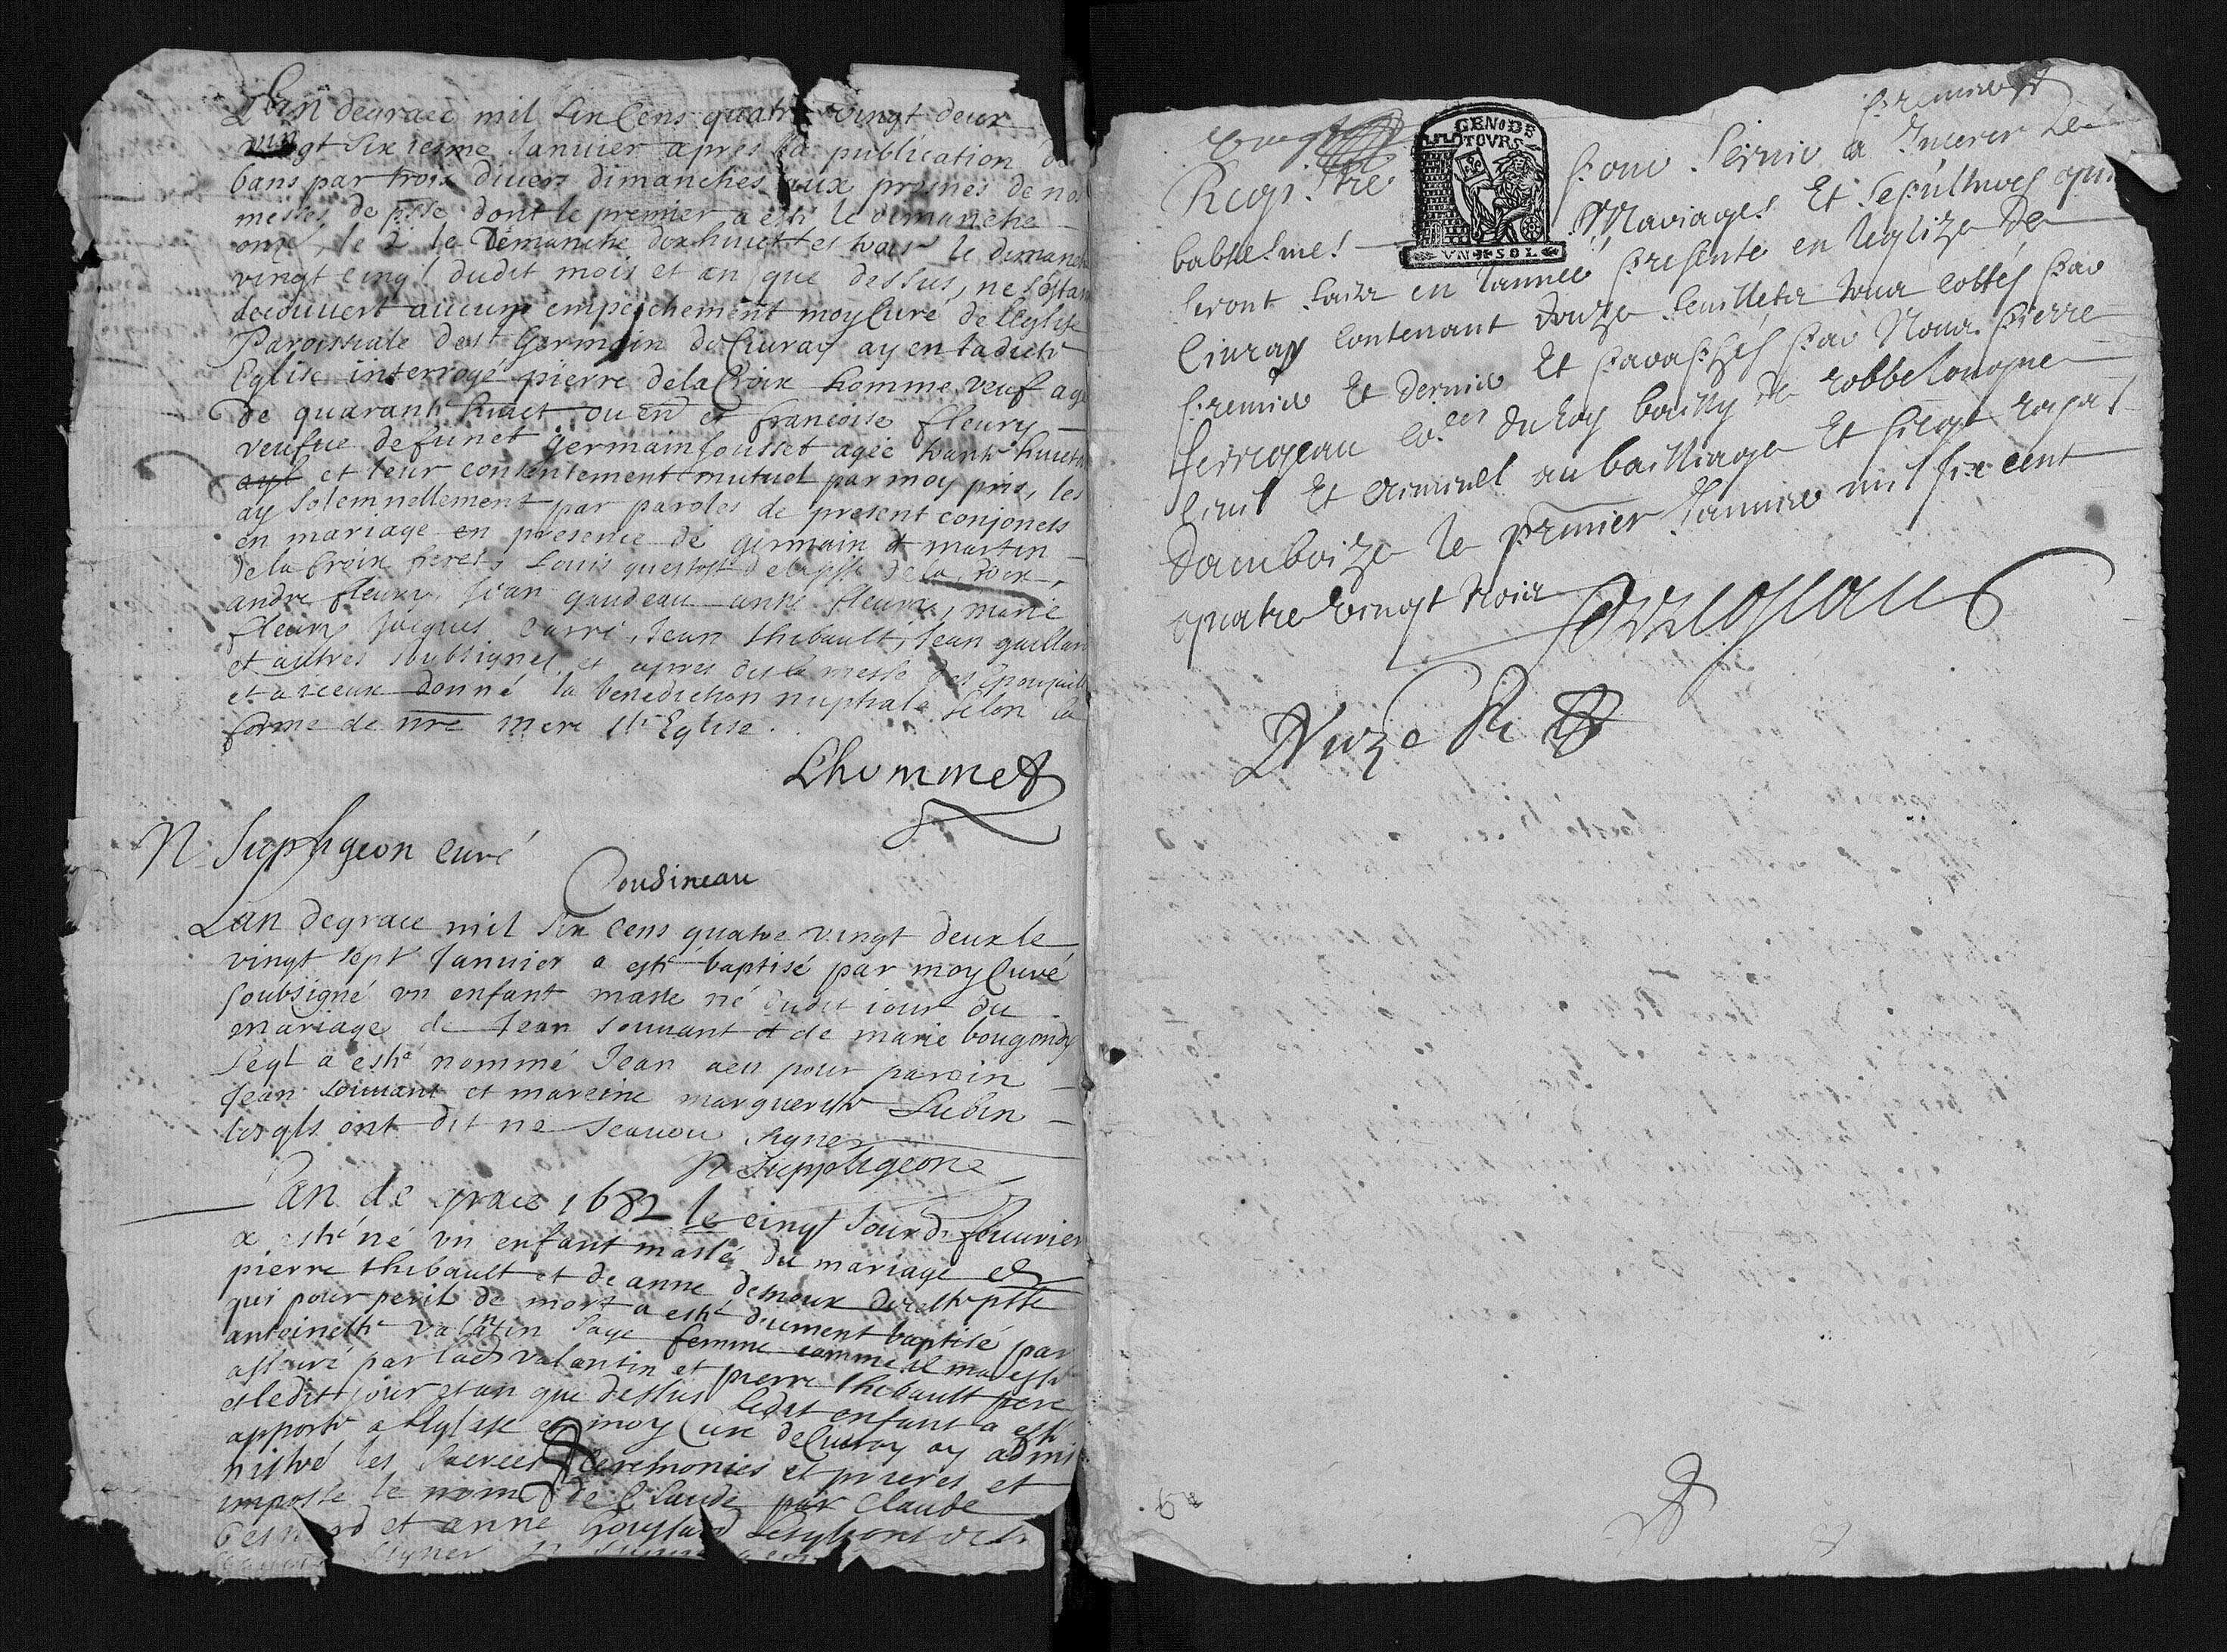 Lan degrace mil six Cens quatre vingt deux
vingt sixiesme Janvier apres la publication de
bans par trois divers dimanches aux prosnes de nos
messes de psse dont le premier a esté le dimanche
onze, le 2 le Dimanche dixhuict et trois le dimanch
vingt cinq dudit mois et an que dessus, ne sestan
decouvert aucun empeschement moy Curé de leglise
Paroissiale de st Germain de Civray ay en ladicte
Eglise interrogé pierre de la Croix homme veuf agé
de quarante huict ou en et francoise fleury
veufue de funct germain Jousset agée trante huict
et leur consentement mutuel par moy pris, les
ay solemnellement par paroles de present conjoncts
en mariage en presence de germain et martin
de la Croix freres, Louis de la Croix,
andre fleury, Jean gaudeau anne fleury, marie
fleury Jacques Carré, Jean thibault, Jean gaillar
et autres soubsignes et apres dit la messe des Epousaill
et a iceux donné la benediction nuptiale selon la
forme de nre mere ste Eglise.
Lhommet
N Suppligeon curé
Cousineau
Lan degrace mil six cens quatre vingt deux le
vingt sept Janvier a esté baptisé par moy Curé
soubsigné un enfant masle né dudit iour du
mariage de Jean souvant et de marie
leql a esté nommé Jean a eu pour parein
Jean souvant et mareine marguerite Lubin
lesqls ont dit ne scavoir signer
N Suppligeon
Lan de grace 1682 le cinq Jour de feuvrier
a esté né un enfant masle du mariage de
pierre thibault et de anne de cette psse
qui pour peril de mort a esté duement baptisé par
antoinette valantin sage femme comme il ma esté
assuré par lad valantin et pierre thibault pere
et ledit jour et an que dessus ledit enfant a esté
apporté a leglise et moy Curé de Civray ay admi
nistré les sacrees ceremonies et prieres et
imposé le nom de Claude par Claude
et anne lesqls ont dit
signer
premier
Registre pour servir a Incerer Les
babtesmes Mariages Et sepultures qui
seront faitz en lannée presente en leglize de
Civray Contenant douze feuilletz tous cottés par
premier Et dernier Et paraphés par Nous Pierre
ferrogeau Coer du Roy bailly de
Civil Et Criminel au bailliage Et siege royal
damboize le premier Janvier mil six cent
quatre vingt trois
Ferrogeau
GEN DE
TOVRS
VN SOL